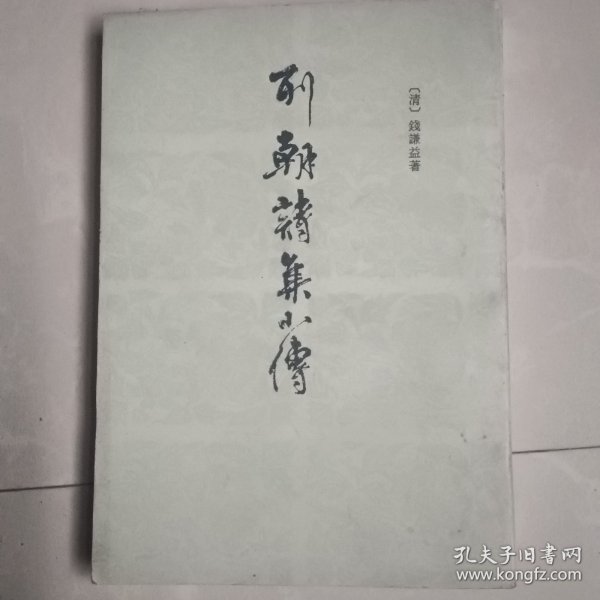 〔清〕錢謙益著
列朝詩集小傳
孔夫子旧書网
www.kongfz.com